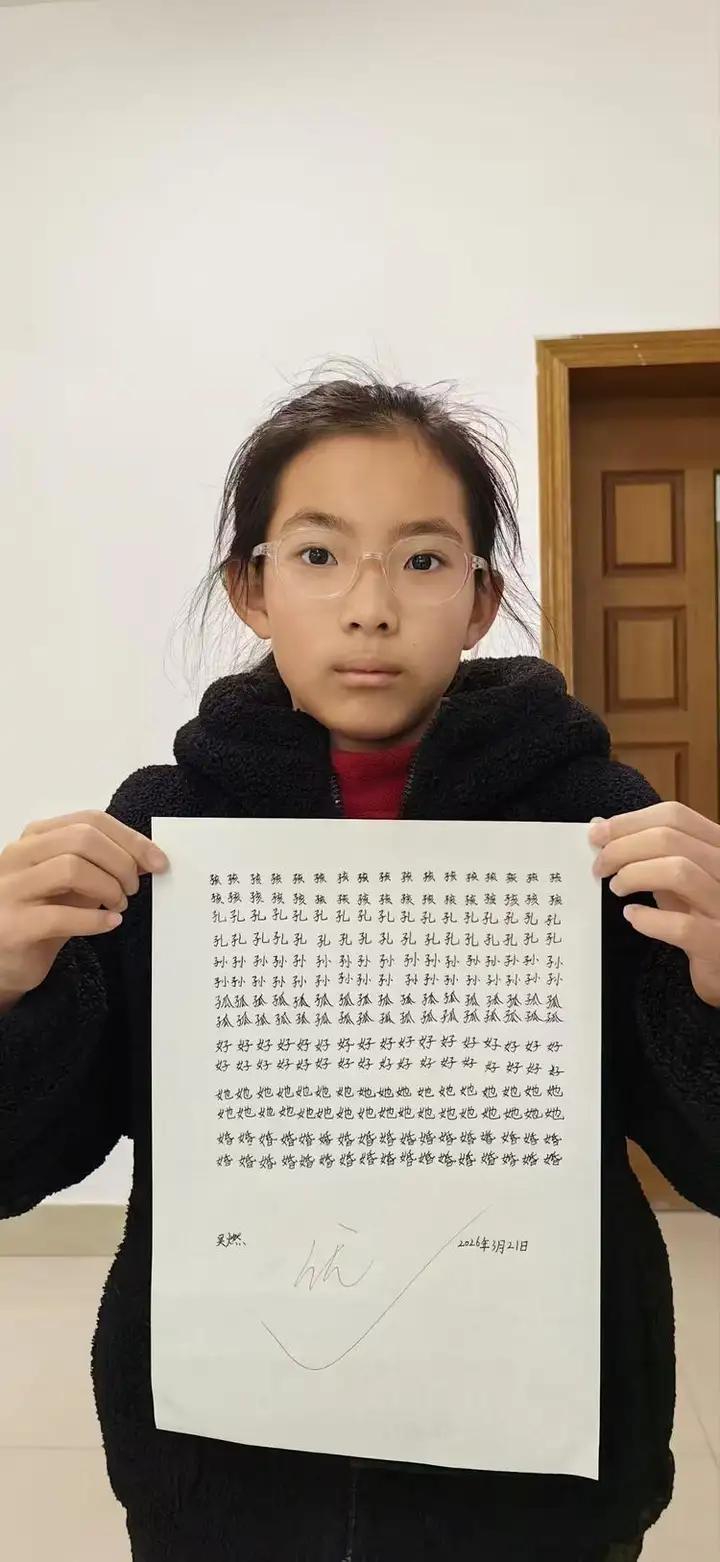 孩孩孩孩孩孩孩孩孩孩孩孩孩孩孩孩孩
孩孩孩孩孩孩孩孩孩孩孩孩孩孩孩孩孩
孔孔孔孔孔孔孔孔孔孔孔孔孔孔孔孔孔
孔孔孔孔孔孔孔孔孔孔孔孔孔孔孔孔孔
孙孙孙孙孙孙孙孙孙孙孙孙孙孙孙孙孙
孙孙孙孙孙孙孙孙孙孙孙孙孙孙孙孙孙
孤孤孤孤孤孤孤孤孤孤孤孤孤孤孤孤孤
孤孤孤孤孤孤孤孤孤孤孤孤孤孤孤孤孤
好好好好好好好好好好好好好好好好好
好好好好好好好好好好好好好好好好好
她她她她她她她她她她她她她她她她她
她她她她她她她她她她她她她她她她她
婚婚婚婚婚婚婚婚婚婚婚婚婚婚婚婚婚
婚婚婚婚婚婚婚婚婚婚婚婚婚婚婚婚婚
吴燃 2026年3月21日
优